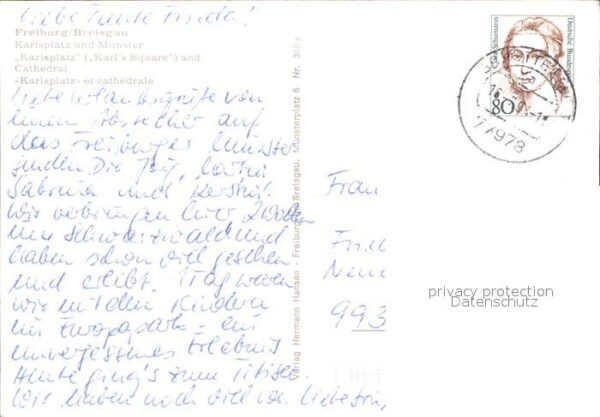 Liebe Tante Frieda!
Freiburg/Breisgau
Karlsplatz und Münster
„Karlsplatz” („Karl's Square”) and
Cathedral
«Karlsplatz» et cathédrale
Liebe Urlaubsgrüße von
einem Abstecher auf
das Freiburger Münster
senden Dir
Sabrina und Kerstin.
Wir verbringen hier 2 Wochen
im Schwarzwald und
haben schon viel gesehen
und erlebt. 1 Tag waren
wir mit den Kindern
im Europapark - ein
unvergessenes Erlebnis
Heute ging's zum Titisee.
Wir haben noch viel vor.
Verlag Hermann Hansen · Freiburg Breisgau, Münsterplatz 6 Nr. 365
Clara Schumann
Deutsche Bundespost
80
77978
Frau
Neue
993
privacy protection
Datenschutz